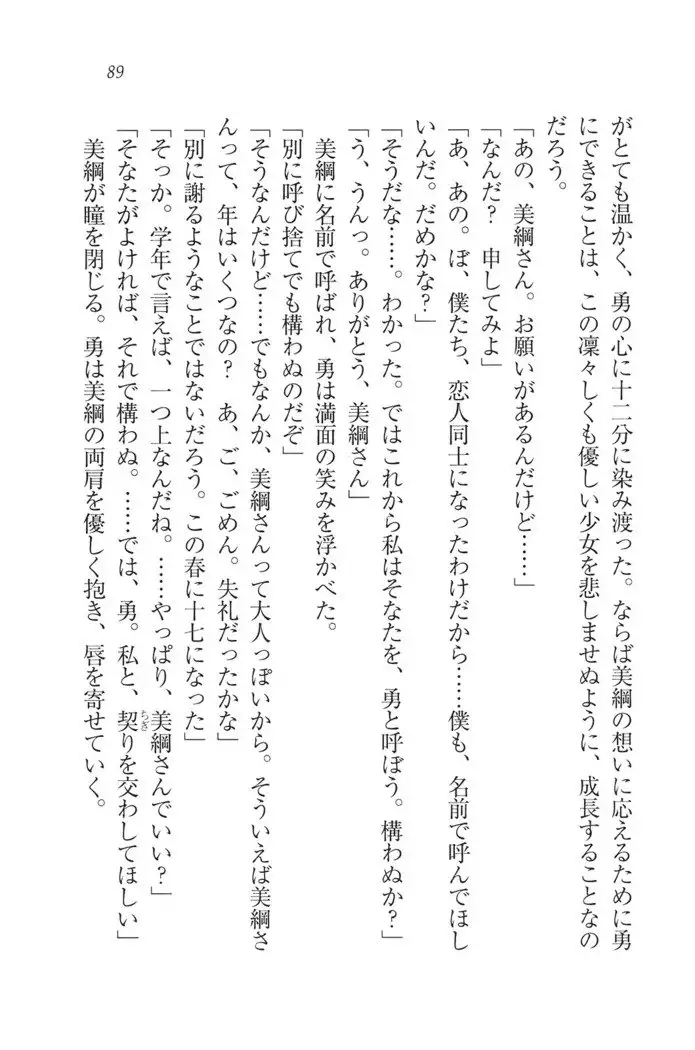 89
がとても温かく、勇の心に十二分に染み渡った。ならば美綱の想いに応えるために勇
にできることは、この凛々しくも優しい少女を悲しませぬように、成長することなの
だろう。
「あの、美綱さん。お願いがあるんだけど……」
「なんだ?　申してみよ」
「あ、あの。ぼ、僕たち、恋人同士になったわけだから……僕も、名前で呼んでほし
いんだ。だめかな?」
「そうだな……。わかった。ではこれから私はそなたを、勇と呼ぼう。構わぬか?」
「う、うんっ。ありがとう、美綱さん」
美綱に名前で呼ばれ、勇は満面の笑みを浮かべた。
「別に呼び捨てでも構わぬのだぞ」
「そうなんだけど……でもなんか、美綱さんって大人っぽいから。そういえば美綱さ
んって、年はいくつなの?　あ、ご、ごめん。失礼だったかな」
「別に謝るようなことではないだろう。この春に十七になった」
「そっか。学年で言えば、一つ上なんだね。……やっぱり、美綱さんでいい?」
「そなたがよければ、それで構わぬ。……では、勇。私と、契ちぎりを交わしてほしい」
美綱が瞳を閉じる。勇は美綱の両肩を優しく抱き、唇を寄せていく。